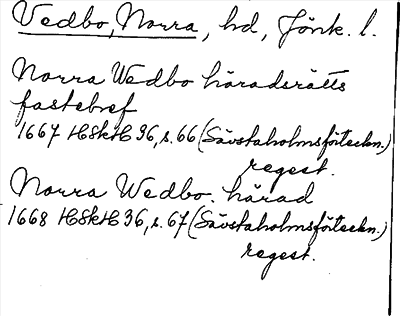 Vedbo, Norra, hd, Jönk. l.
Norra Wedbo häradsrätts
fastebref
1667 HSkH 36, s. 66 (Sävstaholmsförteckn.)
regest.
Norra Wedbo. härad
1668 HSkH 36, s. 67 (Sävstaholmsförteckn.)
regest.